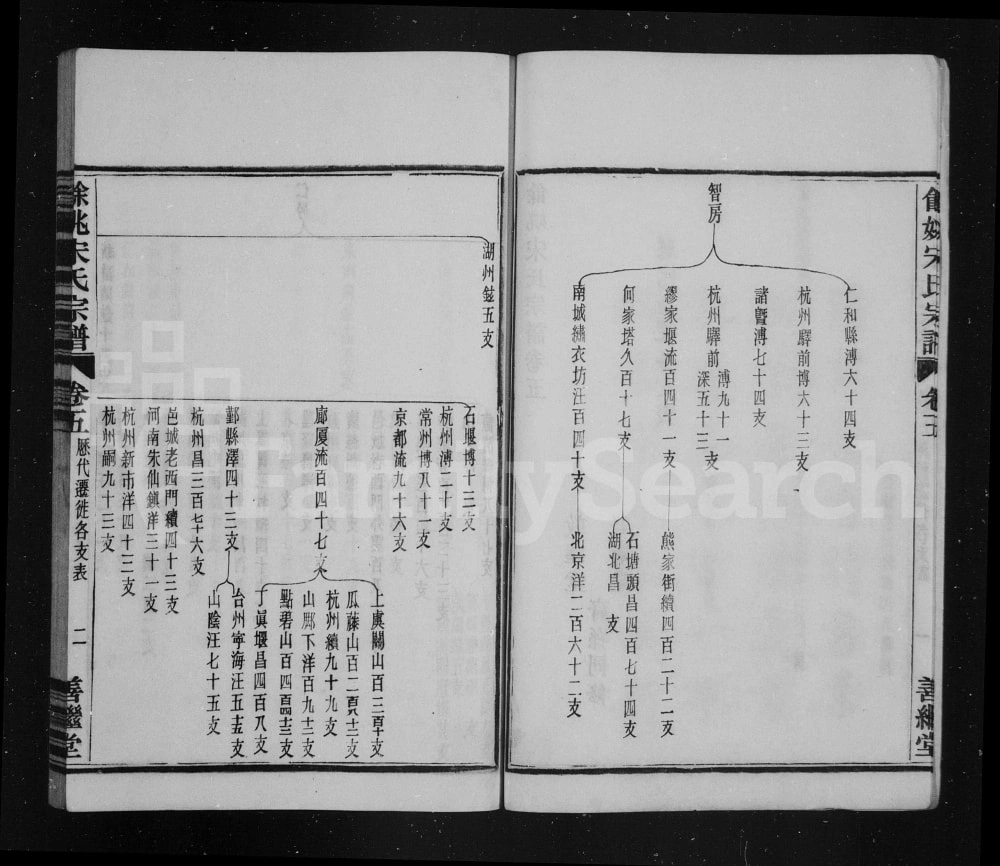 餘姚宋氏宗譜
卷五
善繼堂
智房
仁和縣溥六十四支
杭州驛前博六十三支
諸暨溥七十四支
杭州驛前溥九十一 深五十三支
繆家堰流百四十一支
熊家街續四百二十二支
何家塔久百十七支
石塘頭昌四百七十四支
湖北昌 支
南城繡衣坊汪百四十支
北京洋二百六十二支
湖州鉉五支
石堰博十三支
杭州溥二十支
常州博八十一支
京都流九十六支
廊厦流百四十七支
上虞關山百三十支
瓜藤山百二十三支
杭州續九十九支
山郎下洋百九十三支
點碧山百四十三支
丁眞堰昌四百八支
鄞縣澤四十三支
台州寧海汪五十五支
山陰汪七十五支
杭州昌三百七十六支
邑城老西門續四十三支
河南朱仙鎮洋三十一支
杭州新市洋四十三支
杭州嗣九十三支
餘姚宋氏宗譜
卷五
歷代遷徙各支表
二
善繼堂
FamilySearch